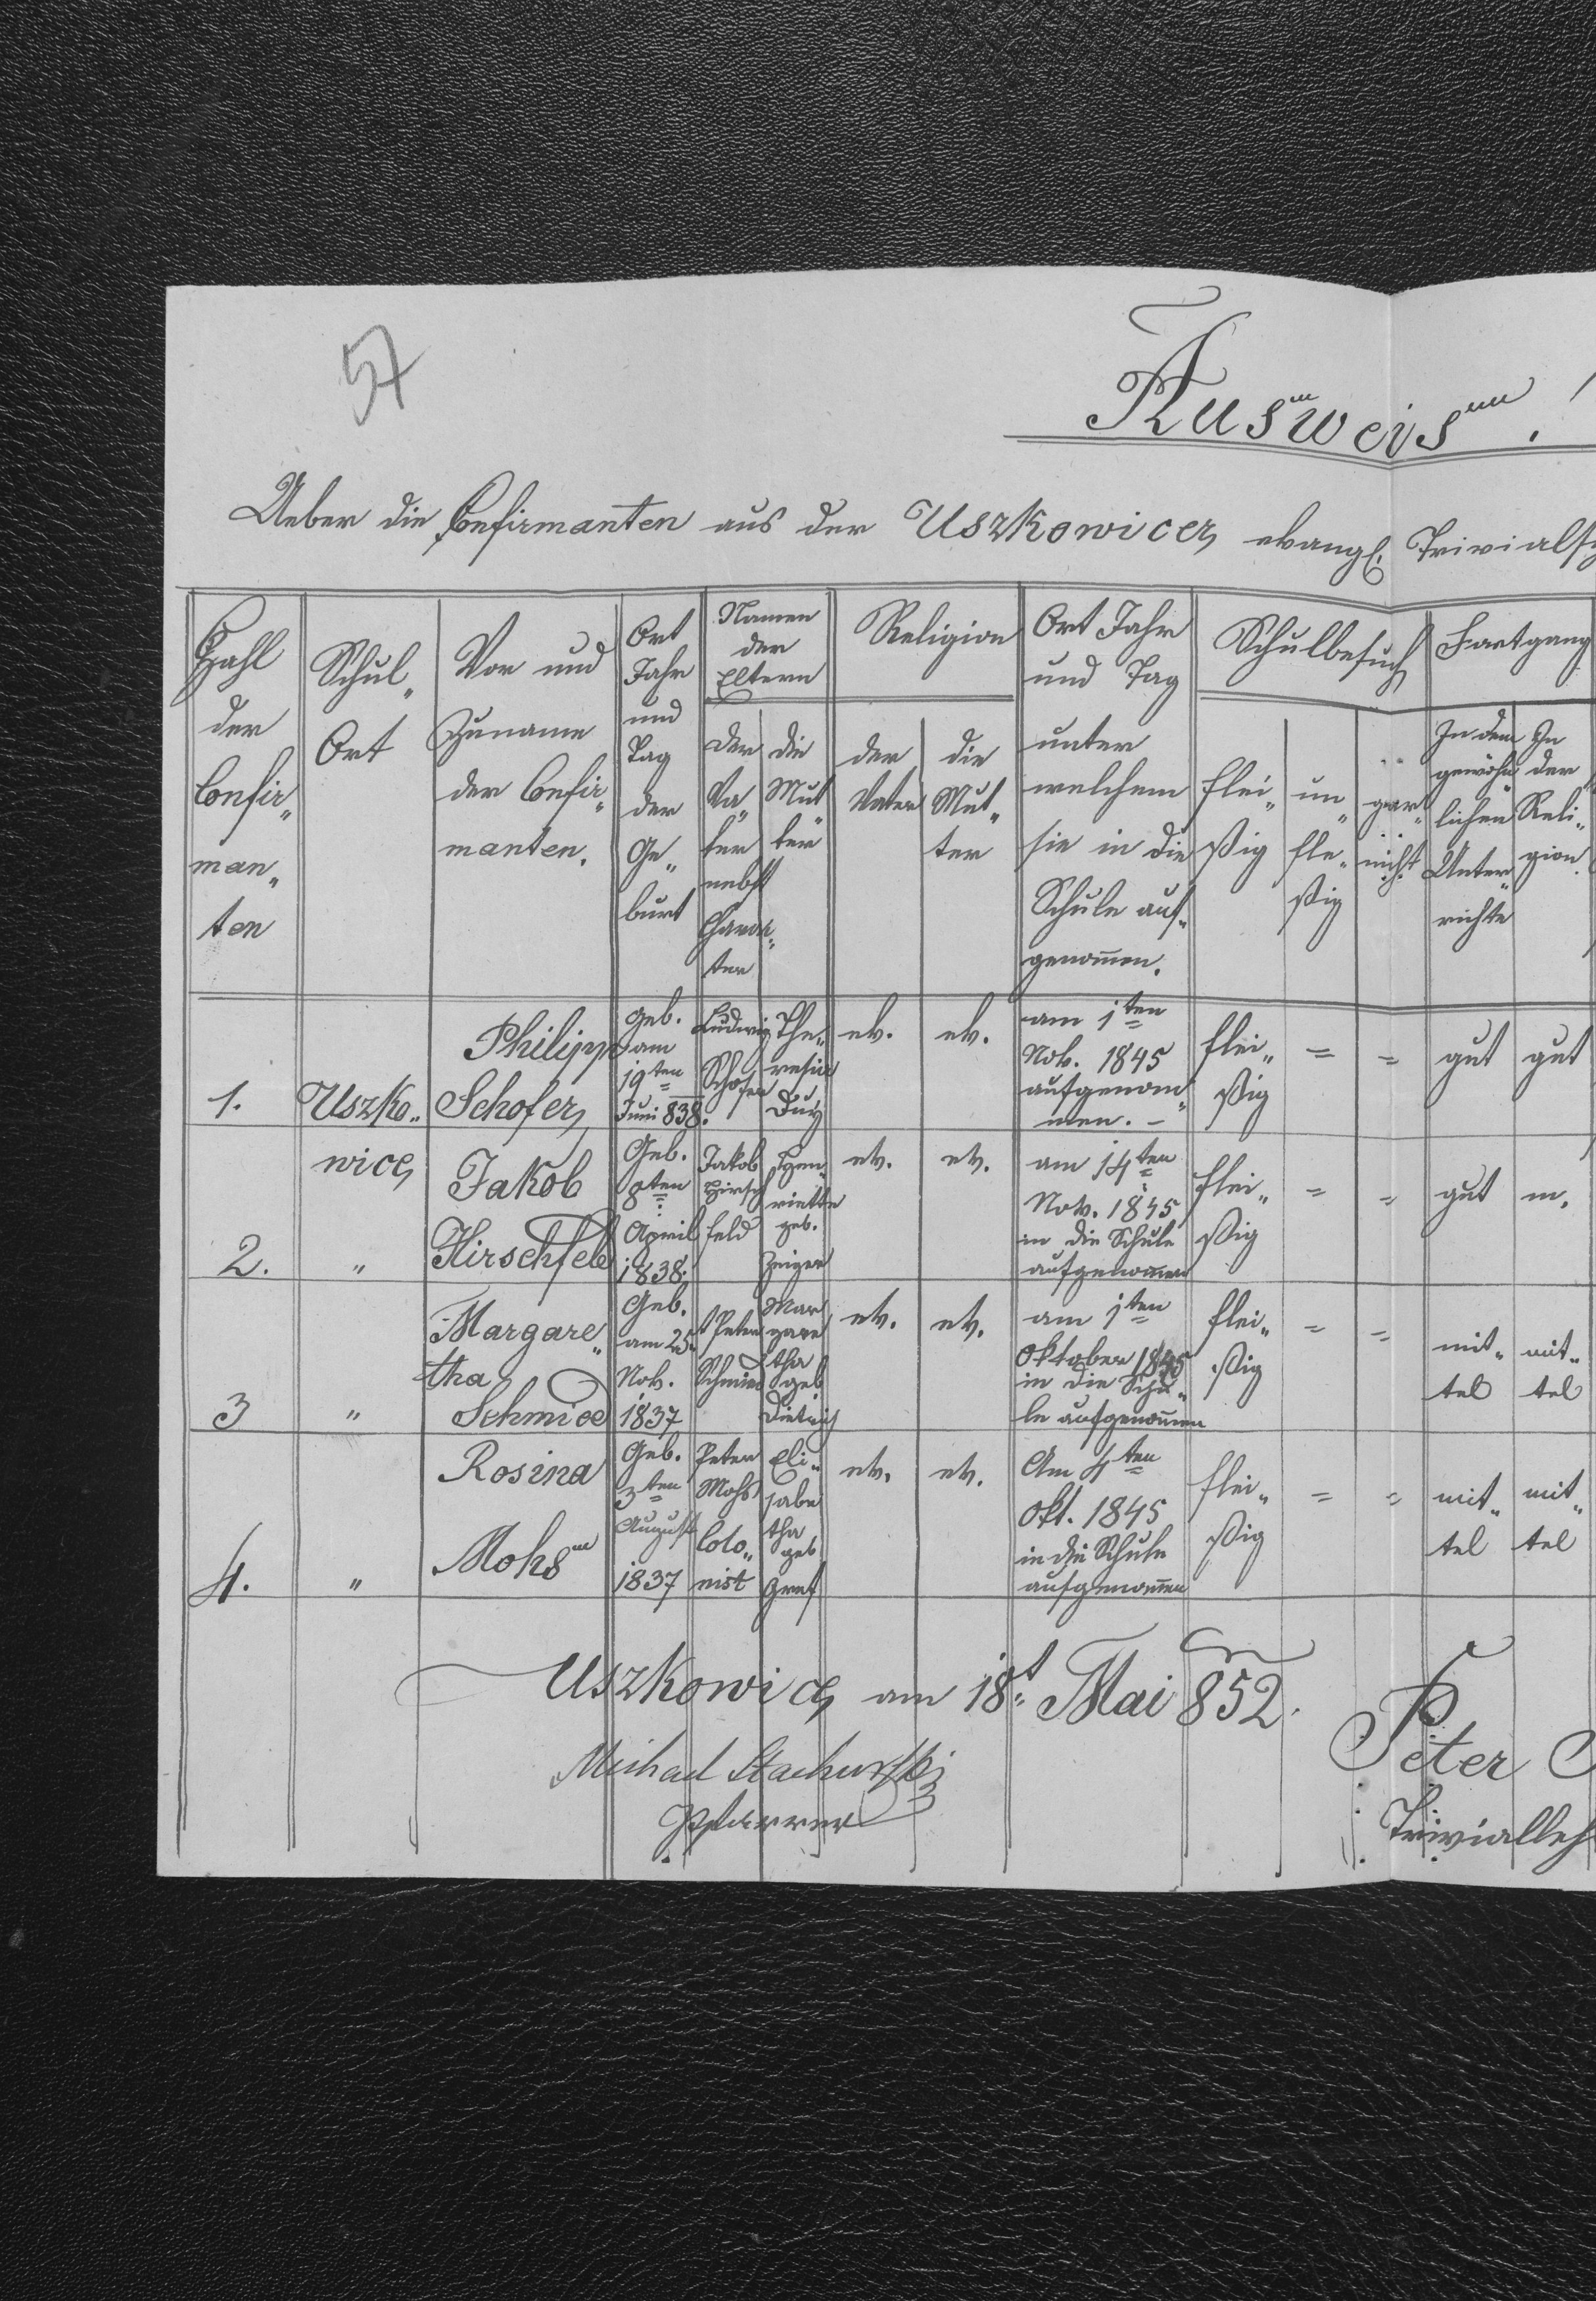 57
Ausweis.
Ueber die Confirmanten aus der Uszkowicer evangl. Trivialsch
Zahl der Confir„ man„ ten
Schul„ Ort
Vor und Zuname der Confir„ manten.
Ort Jahr und Tag der Ge„ burt
Namen der Eltern
der Va„ ter nebst Charak„ ter
die Mut„ ter
Religion
der Vater
die Mut„ ter
Ort Jahr und Tag unter welchem sie in die Schule auf„ genommen.
Schulbesuch
flei„ ßig
un„ flei„ ßig
gar„ nicht
Fortgang
In dem gewöhn„ lichen Unter„ richte
In der Reli„ gion.
1. Uszko„ wice
Philipp Schofer
geb. am 19ten Juni 838.
Ludwig Schofer
The„ resia
ev. ev.
am 1ten Nov. 1845 aufgenom„ men. –
flei„ ßig = = gut gut
2. „
Jakob Hirschfeld
Geb. 8ten April 1838.
Jakob Hirsch feld
Hen„ riette geb. Zeiger
ev. ev.
am 14ten Nov. 1845 in die Schule aufgenommen
flei„ ßig = = gut m.
3 „
Margare„ tha Schmied
Geb. am 25„ Nov. 1837
† Peter Schmied
Mar gare tha geb Dietrich
ev. ev.
am 1ten Oktober 1845 in die Schu„ le aufgenommen
flei„ ßig = = mit„ tel mit„ tel
4. „
Rosina Mohs
Geb. 3ten August 1837
Peter Mohs Colo„ nist
Eli„ sabe tha geb Graf
ev. ev.
Am 4ten Okt. 1845 in die Schule aufgenommen
flei„ ßig = = mit„ tel mit„ tel
Uszkowice am 18t. Mai 852.
Michael Stachurski
Pfarrer
Peter
Trivialleh